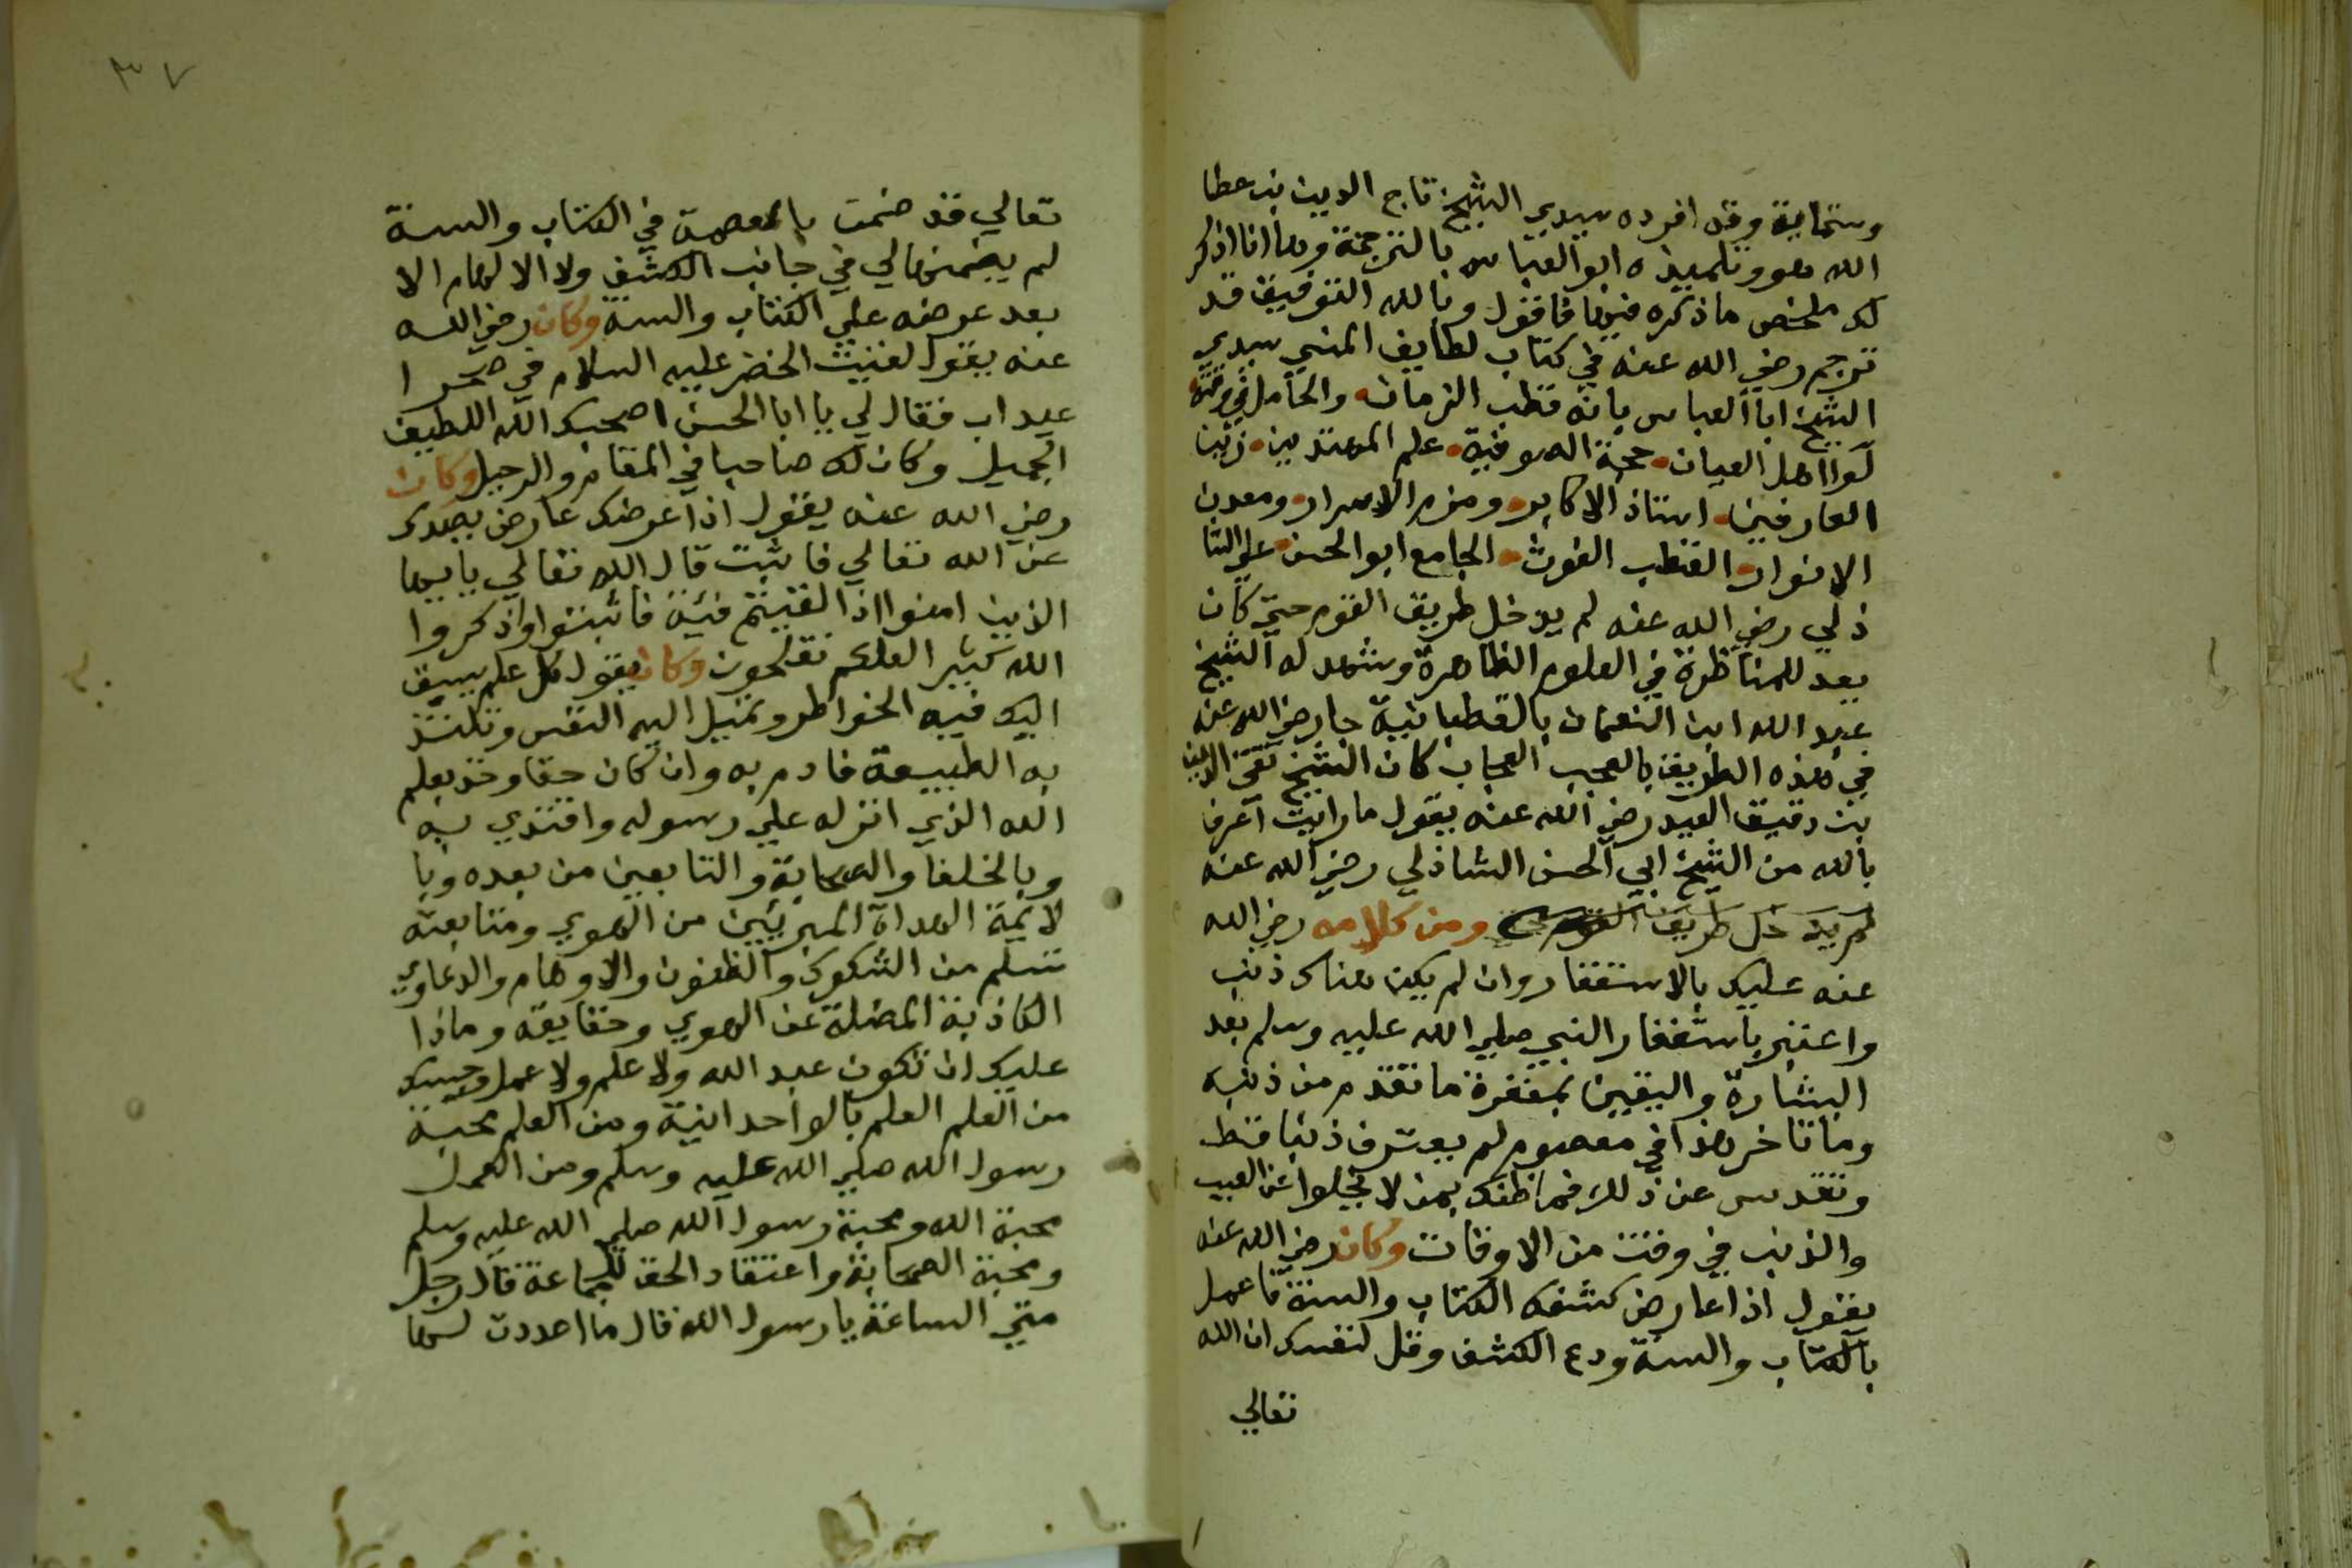 وستماية وقد افرده سيدي الشيخ تاج الدين بن عطا
الله هو وتلميذه ابو العباس بالترجمة وها انا اذكر
لك ملخص ما ذكره فيها فاقول وبالله التوفيق قد
ترجم رضي الله عنه في كتاب لطايف المنن سيدي
الشيخ ابا العباس بانه قطب الزمان والحامل في وقته
لوا اهل العيان حجة الصوفية علم المهتدين زين
العارفين استاذ الاكابر وزمزم الاسرار ومعدن
الانوار القطب الغوث الجامع ابو الحسن علي الشا
ذلي رضي الله عنه لم يدخل طريق القوم حتي كان
يعد للمناظرة في العلوم الظاهرة وشهد له الشيخ
عبد الله ابن النعمان بالقطبانية جا رضي الله عنه
في هذه الطريق بالعجب العجاب كان الشيخ تقي الدين
بن دقيق العيد رضي الله عنه يقول ما رايت اعرف
بالله من الشيخ ابي الحسن الشاذلي رضي الله عنه
لم يدخل طريق القوم ومن كلامه رضي الله
عنه عليك بالاستغفار وان لم يكن هناك ذنب
واعتبر باستغفار النبي صلي الله عليه وسلم بعد
البشارة واليقين بمغفرة ما تقدم من ذنبه
وما تاخر هذا في معصوم لم يعترف ذنبا قط
وتقدس عن ذلك فما ظنك بمن لا يخلوا عن العيب
والذنب في وقت من الاوقات وكان رضي الله عنه
يقول اذا عارض كشفك الكتاب والسنة فاعمل
بالكتاب والسنة ودع الكشف وقل لنفسك ان الله
تعالي
٣٧
تعالي قد ضمنت بالعصمة في الكتاب والسنة
لم يضمنها لي في جانب الكشف ولا الالهام الا
بعد عرضه علي الكتاب والسنة وكان رضي الله
عنه يقول لقيت الخضر عليه السلام في صحرا
عيداب فقال لي يا ابا الحسن اصحبك الله اللطيف
الجميل وكان لك صاحبا في المقام والرحيل وكان
رضي الله عنه يقول اذا عرضك عارض يصدك
عن الله تعالي فاثبت قال الله تعالي يا ايها
الذين امنوا اذا لقيتم فئة فاثبتوا واذكروا
الله كثيرا لعلكم تفلحون وكان يقول كل علم سبق
اليك فيه الخواطر وتميل اليه النفس وتلتذ
به الطبيعة فارم به وان كان حقا وخذ بعلم
الله الذي انزله علي رسوله واقتدي به
وبالخلفا والصحابة والتابعين من بعده وبا
لايمة الهداة المبريين من الهوي ومتابعته
تسلم من الشكوك والظنون والاوهام والدعاوي
الكاذبة المضلة عن الهوي وحقايقه وماذا
عليك ان تكون عبد الله ولا علم ولا عمل وحسبك
من العلم العلم بالواحدانية ومن العلم محبة
رسول الله صلي الله عليه وسلم ومن العمل
محبة الله ومحبة رسول الله صلي الله عليه وسلم
ومحبة الصحابة واعتقاد الحق للجماعة قال رجل
متي الساعة يا رسول الله قال ما اعددت لها